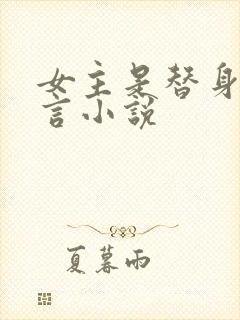 女主是替身
言小說
夏暮雨